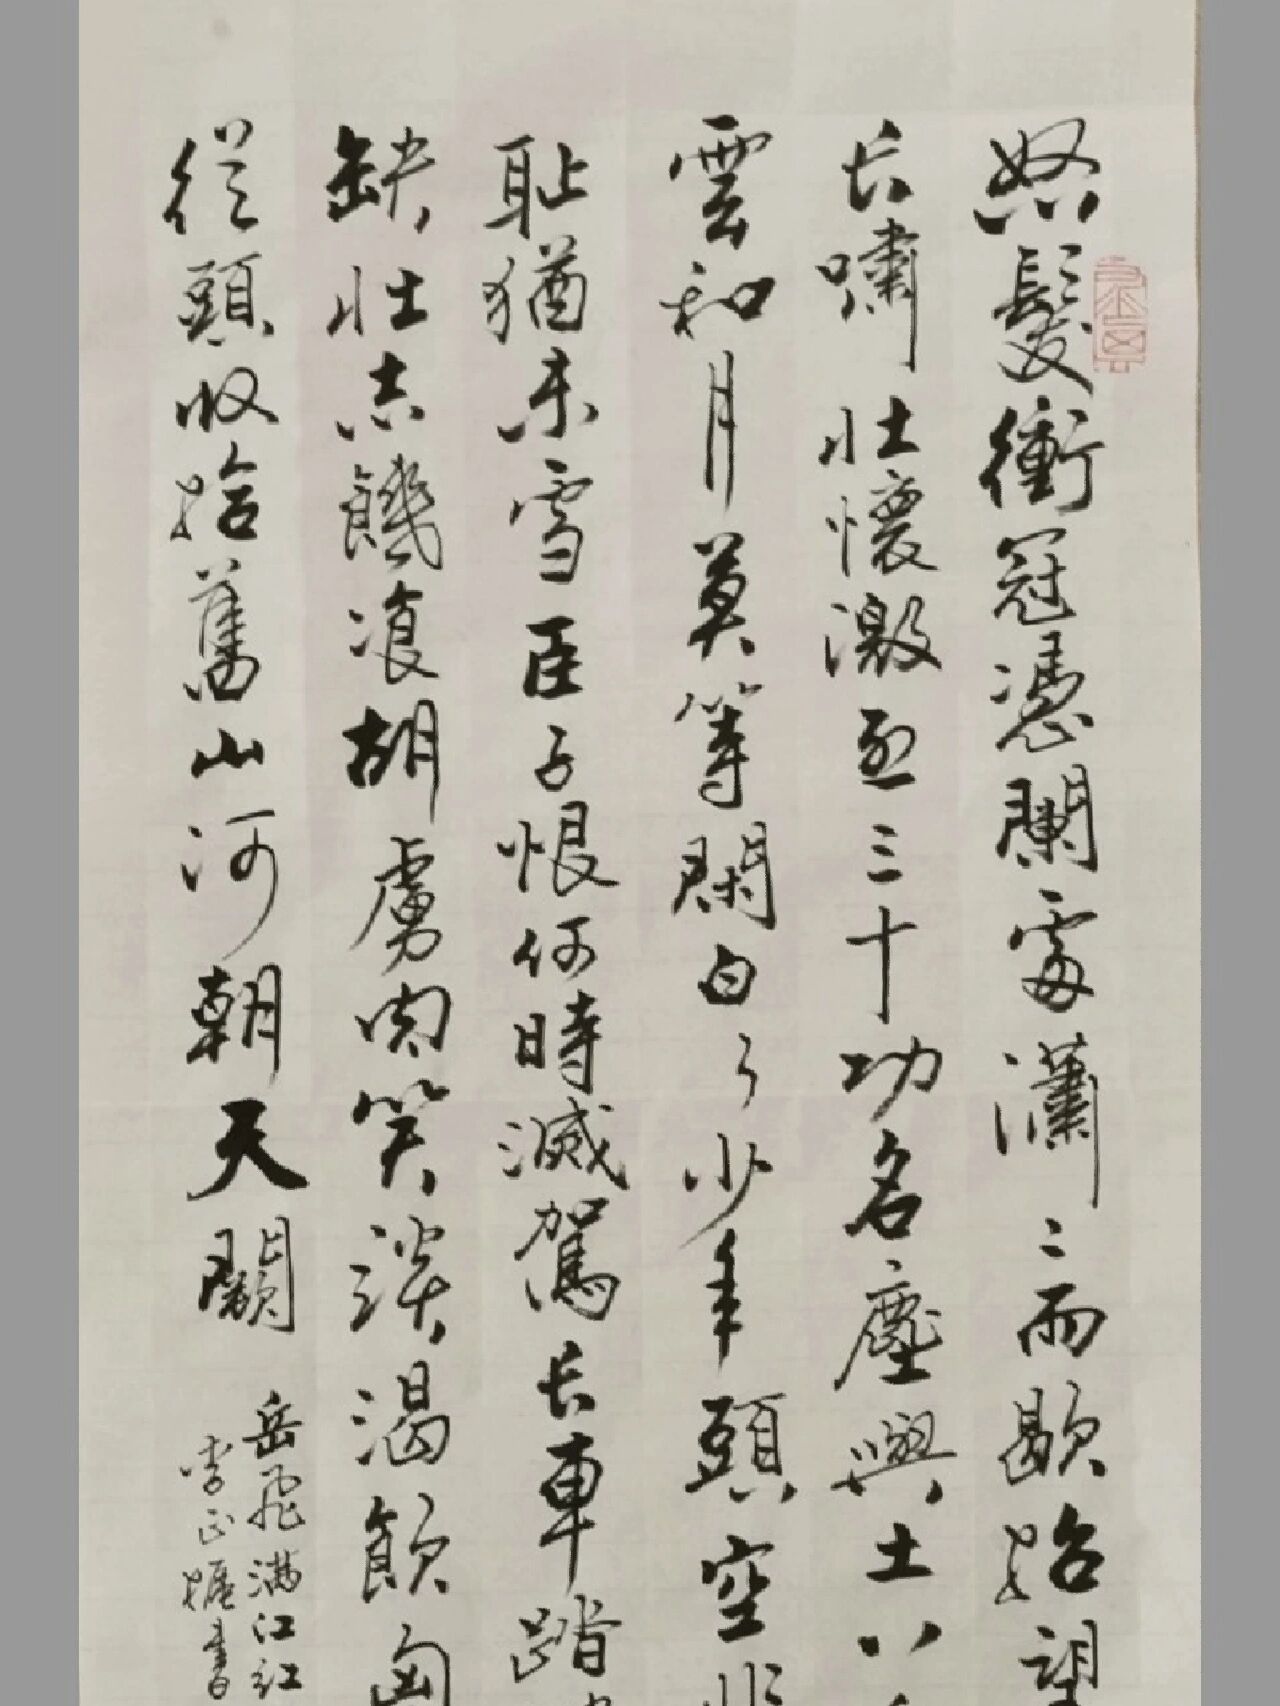 怒髮衝冠憑闌處瀟〻雨歇抬望
長嘯壯懷激烈三十功名塵與土八
雲和月莫等閑白了少年頭空悲
恥猶未雪臣子恨何時滅駕長車踏
缺壯志饑飡胡虜肉笑談渴飲匈
從頭收拾舊山河朝天闕
岳飛滿江紅
李正
書